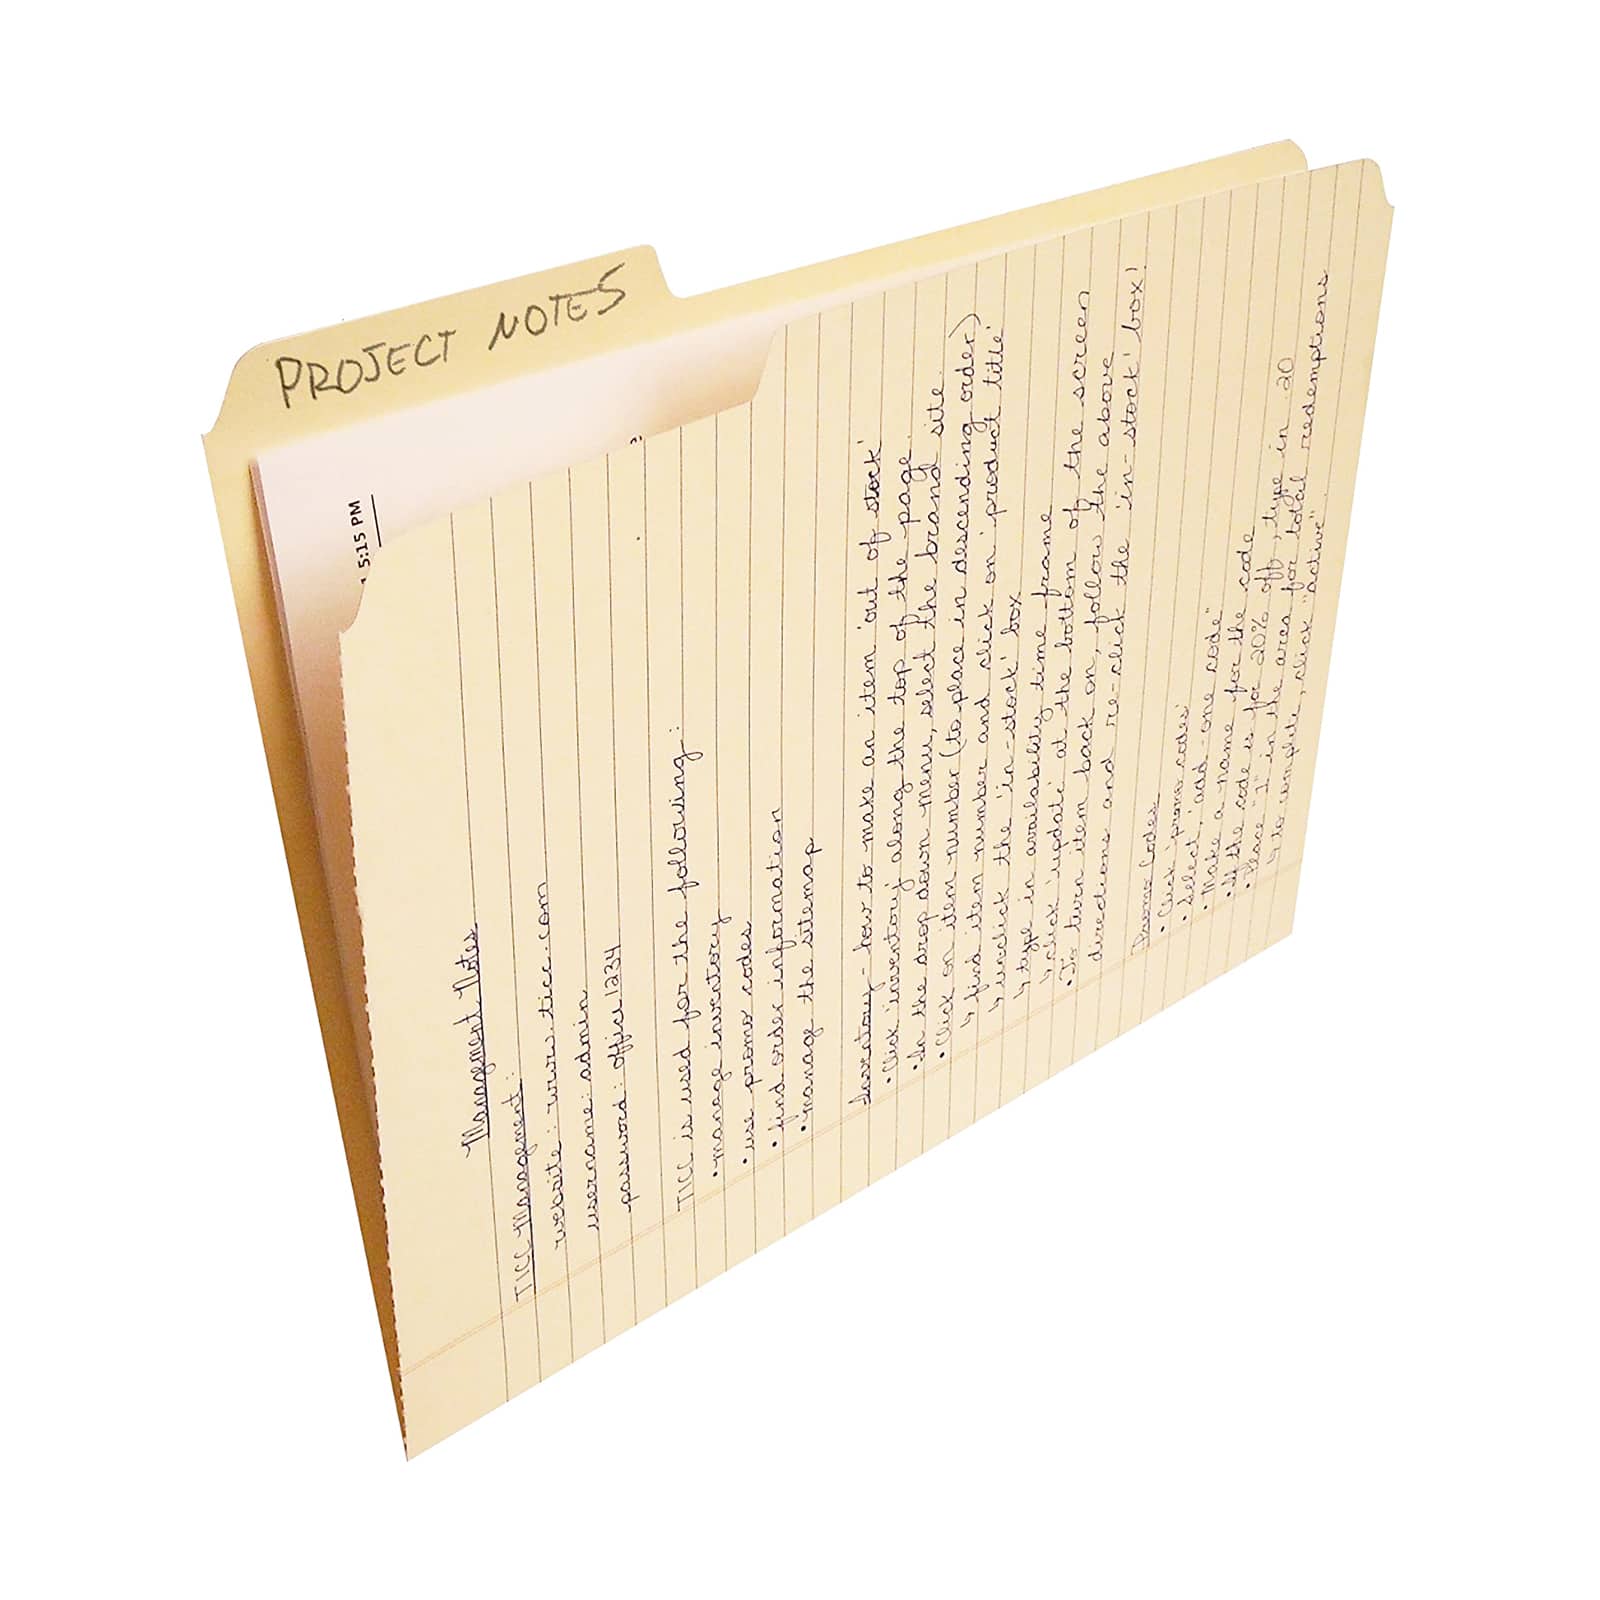 PROJECT NOTES
5:15 PM
Managment Notes
TICC Managment:
website: www.ticc.com
username: admin
password: office1234
TICC is used for the following:
• manage inventory
• use promo codes
• find order information
• manage the sitemap
Inventory - how to make an item 'out of stock'
• Click 'inventory along the top of the page.
• In the drop down menu, select the brand site.
• Click on item number (to place in descending order)
↳ find item number and click on 'product title'
↳ unclick the 'in-stock' box
↳ type in availability time frame
↳ click 'update' at the bottom of the screen
• To turn item back on, follow the above
directions and re-click the 'in-stock' box!
Promo Codes
• Click 'promo codes'
• Select, 'add-one code"
• Make a name for the code
• If the code is for 20% off, type in 20
• Place "1" in the area for total redemptions
↳ to complete, click "active".